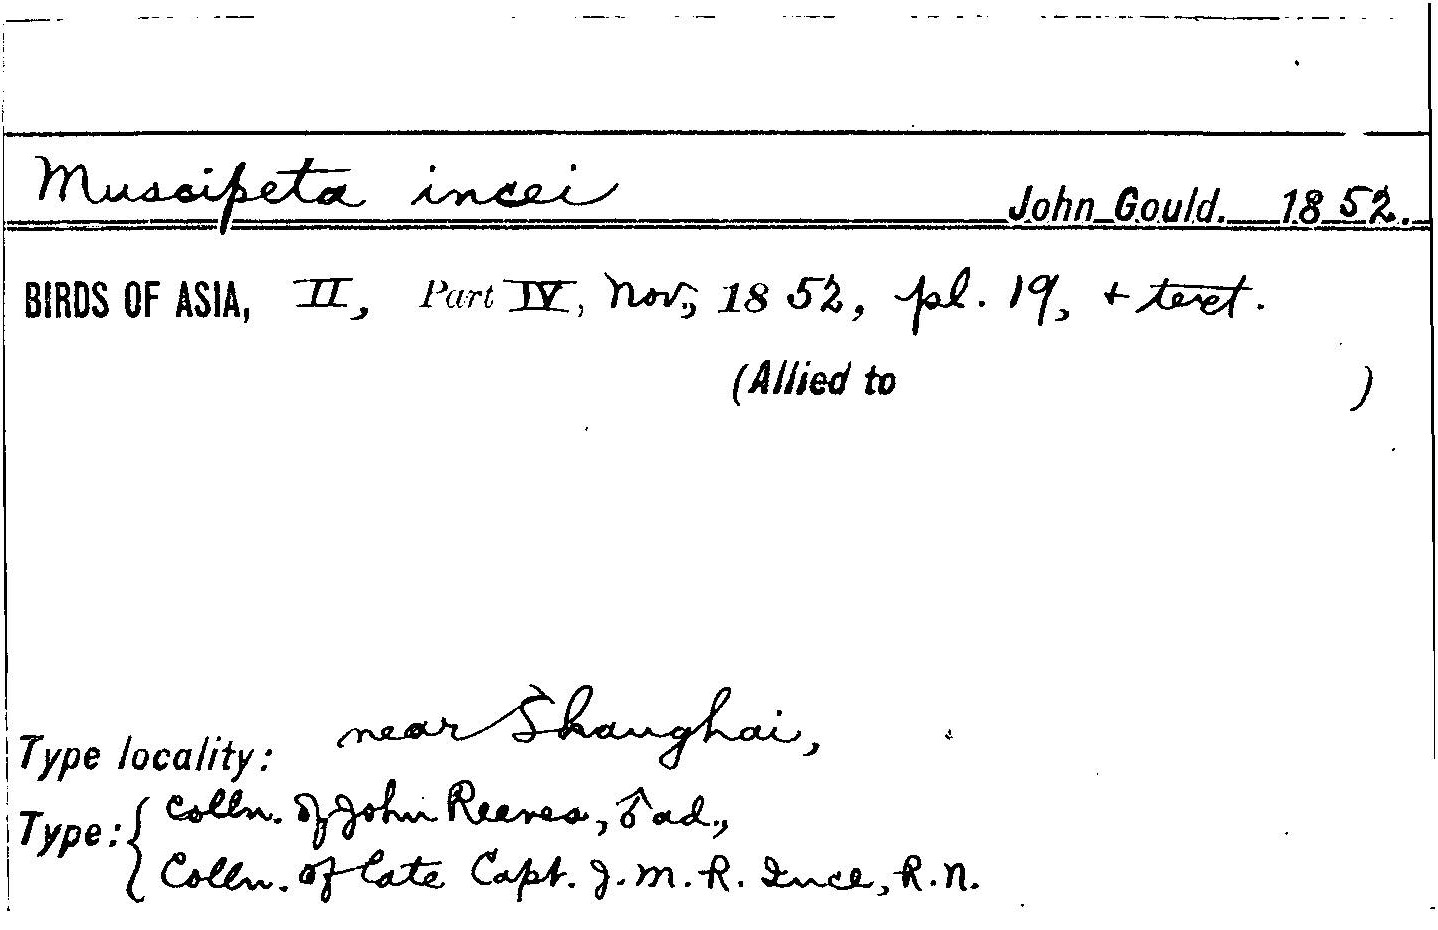 Muscipeta incei John Gould. 1852.
BIRDS OF ASIA, II, Part IV, Nov., 1852, pl. 19, + text.
(Allied to )
Type locality: near Shanghai,
Type: { Colln. of John Reeves, ♂ ad.,
Colln. of late Capt. J. M. R. Ince, R.N.